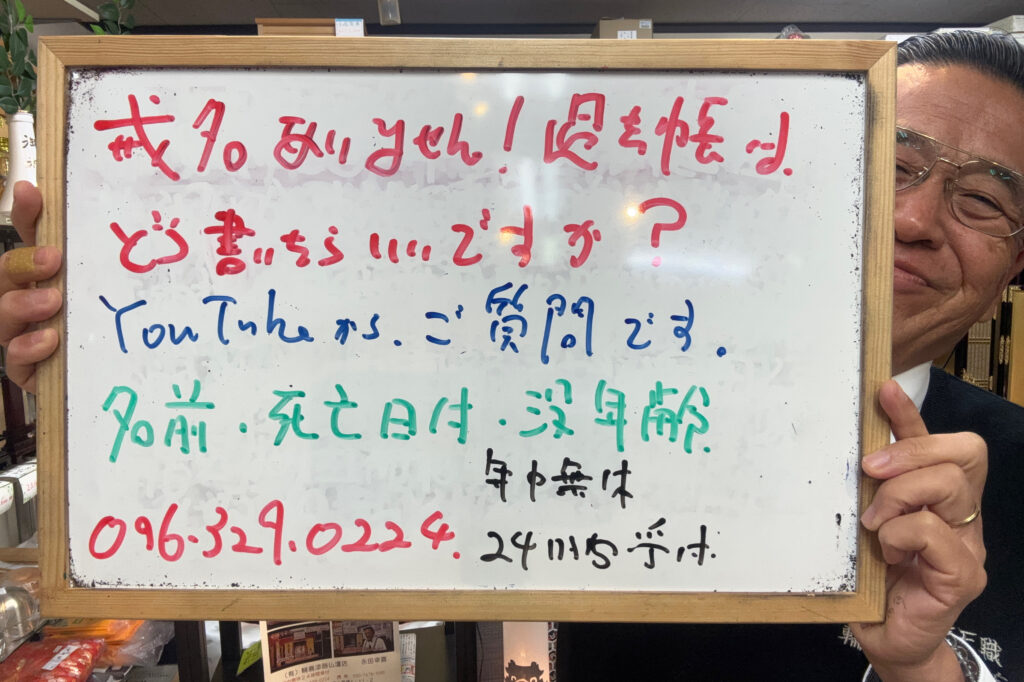 戒名ありません!過去帳は
どう書いたらいいですか?
YouTubeから、ご質問です。
名前・死亡日付・没年齢
年中無休
096.329.0224.
24時間受付